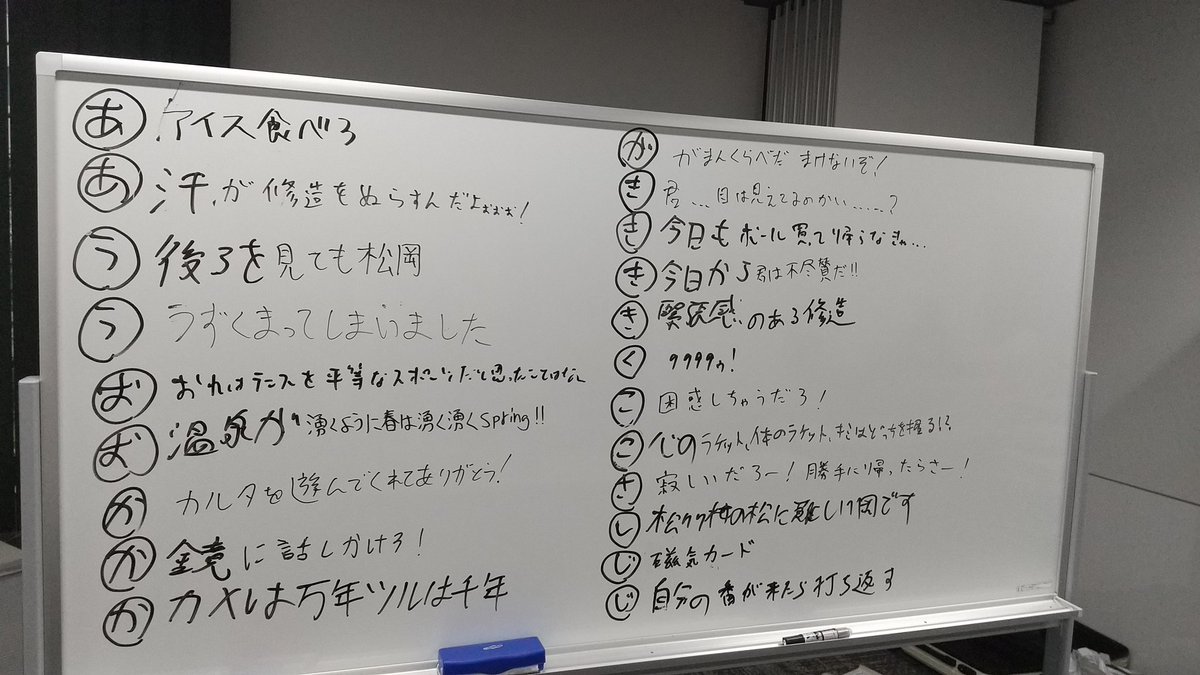 あ アイス食べろ
あ 汗が修造をぬらすんだよぉぉぉ!
う 後ろを見ても松岡
う うずくまってしまいました
お おれはテニスを平等なスポーツだと思ったことはない
お 温泉が湧くように春は湧く湧くspring!!
か カルタを遊んでくれてありがとう!
か 鏡に話しかけろ!
か カメは万年ツルは千年
が がまんくらべだ まけないぞ!
き 君...目は見えてるのかい......?
き 今日もボール買って帰らなきゃ...
き 今日から君は不尽賛だ!!
き 緊張感のある修造
く 9999ぅ!
こ 困惑しちゃうだろ!
こ 心のラケット、体のラケット、きみはどっちを握る!?
さ 寂しいだろー!勝手に帰ったらさー!
し 松竹梅の松に難しい岡です
じ 磁気カード
じ 自分の番が来たら打ち返す